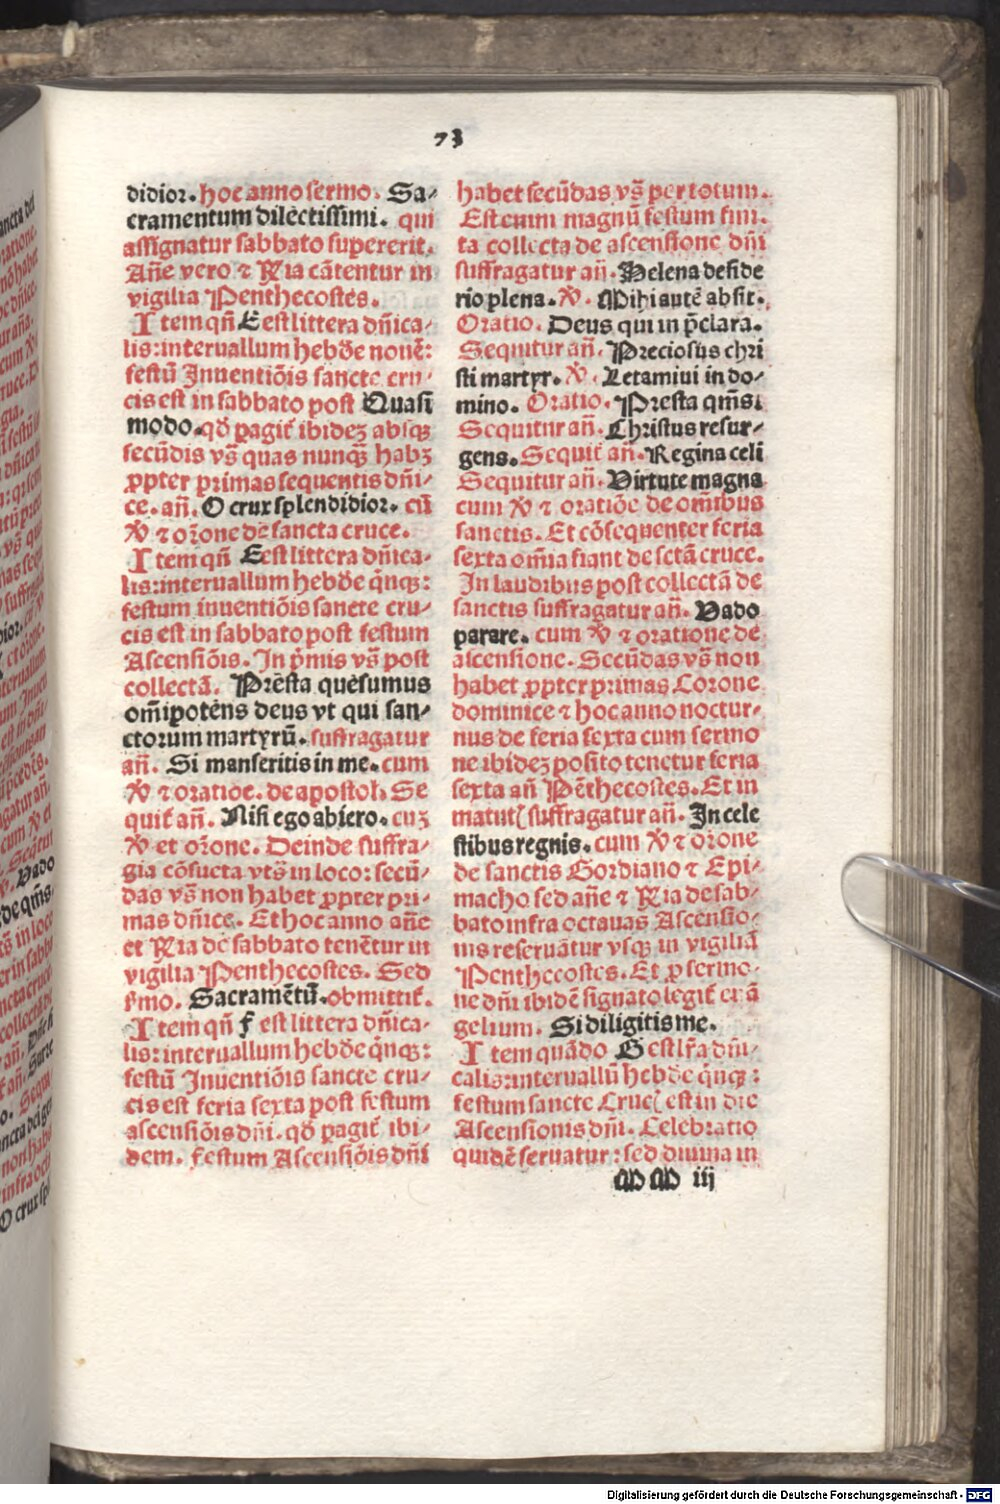 73
didior. hoc anno sermo. Sa⸗
cramentum dilectissimi. qui
assignatur sabbato supererit.
Añe vero ⁊ R̃ia cãtentur in
vigilia Penthecostes.
Item qñ E est littera dñica⸗
lis: interuallum hebde nouẽ:
festũ Inuentiõis sancte cru⸗
cis est in sabbato post Quasi
modo. qđ pagit᷑ ibidez absqꝫ
secũdis vs̃ quas nunqꝫ habꝫ
ꝓpter primas sequentis dñi⸗
ce. añ. O crux splendidior. cũ
℣ ⁊ or̃one de sancta cruce.
Item qñ E est littera dñica⸗
lis: interuallum hebde q̃nqꝫ:
festum inuentiõis sancte cru⸗
cis est in sabbato post festum
Ascensiõis. In p̃mis vs̃ post
collectã. Prẽsta quẽsumus
om̃ipotẽns deus vt qui san⸗
ctorum martyrũ. suffragatur
añ. Si manseritis in me. cum
℣ ⁊ oratiõe. de apostol. Se
quit᷑ añ. Nisi ego abiero. cuꝫ
℣ et or̃one. Deinde suffra⸗
gia cõsucta vts̃ in loco: secũ⸗
das vs̃ non habet ꝓpter pri⸗
mas dñice. Et hoc anno añe
et R̃ia de sabbato tenẽtur in
vigilia Penthecostes. Sed
s̃mo. Sacramẽtũ. obmittit᷑.
Item qñ f est littera dñica⸗
lis: interuallum hebde q̃nqꝫ:
festũ Inuentiõis sancte cru⸗
cis est feria sexta post festum
ascensiõis dñi. qđ pagit᷑ ibi⸗
dem. Festum Ascensiõis dñi
habet secũdas vs̃ per totum.
Est cum magnũ festum fini.
ta collecta de ascensione dñi
suffragatur añ. Helena deside
rio plena. ℣. Mihi autẽ absit.
Oratio. Deus qui in p̃clara.
Sequitur añ. Preciosus chri
sti martyr. ℣. Letamiui in do⸗
mino. Oratio. Presta qm̃si
Sequitur añ. Christus resur⸗
gens. Sequit᷑ añ. Regina celi
Sequitur añ. Virtute magna
cum ℣ ⁊ oratiõe de om̃ibus
sanctis. Et cõsequenter feria
sexta om̃ia fiant de sctã cruce.
In laudibus post collectã de
sanctis suffragatur añ. Vado
parare. cum ℣ ⁊ oratione de
ascensione. Secũdas vs̃ non
habet ꝓpter primas Corone
dominice ⁊ hoc anno noctur⸗
nus de feria sexta cum sermo
ne ibidez posito tenetur feria
sexta añ Pẽthecostes. Et in
matut᷑ suffragatur añ. In cele
stibus regnis. cum ℣ ⁊ or̃one
de sanctis Gordiano ⁊ Epi⸗
macho sed añe ⁊ R̃ia de sab⸗
bato infra octauas Ascensio⸗
nis reseruãtur vsqꝫ in vigiliã
Penthecostes. Et ꝓ sermo⸗
ne dñi ibidẽ signato legit᷑ euã
gelium. Si diligitis me.
Item quãdo G est lr̃a dñi⸗
calis: interuallũ hebde q̃nqꝫ:
festum sancte Cruc᷑ est in die
Ascensionis dñi. Celebratio
quidẽ seruatur: sed diuina in
MM iij
Digitalisierung gefördert durch die Deutsche Forschungsgemeinschaft - DFG